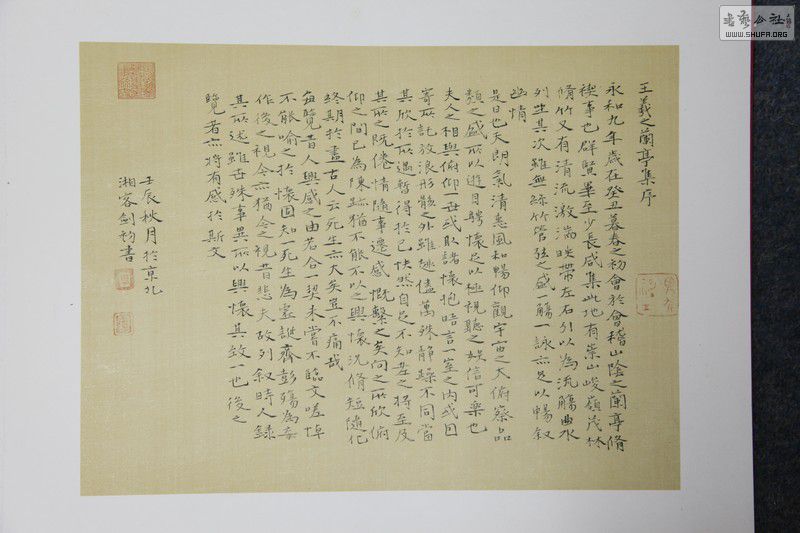 王羲之蘭亭集序
永和九年歲在癸丑暮春之初會於會稽山陰之蘭亭脩
禊事也群賢畢至少長咸集此地有崇山峻嶺茂林
脩竹又有清流激湍映帶左右引以為流觴曲水
列坐其次雖無絲竹管弦之盛一觴一詠亦足以暢敘
幽情
是日也天朗氣清惠風和暢仰觀宇宙之大俯察品
類之盛所以遊目騁懷足以極視聽之娛信可樂也
夫人之相與俯仰一世或取諸懷抱晤言一室之內或因
寄所託放浪形骸之外雖趣舍萬殊靜躁不同當
其欣於所遇暫得於己快然自足不知老之將至及
其所之既倦情隨事遷感慨繫之矣向之所欣俯
仰之間已為陳跡猶不能不以之興懷況脩短隨化
終期於盡古人云死生亦大矣豈不痛哉
每覽昔人興感之由若合一契未嘗不臨文嗟悼
不能喻之於懷固知一死生為虛誕齊彭殤為妄
作後之視今亦猶今之視昔悲夫故列敘時人錄
其所述雖世殊事異所以興懷其致一也後之
覽者亦將有感於斯文
壬辰秋月於京北
湘客劍鈞書
書藝公社
WWW.SHUFA.ORG